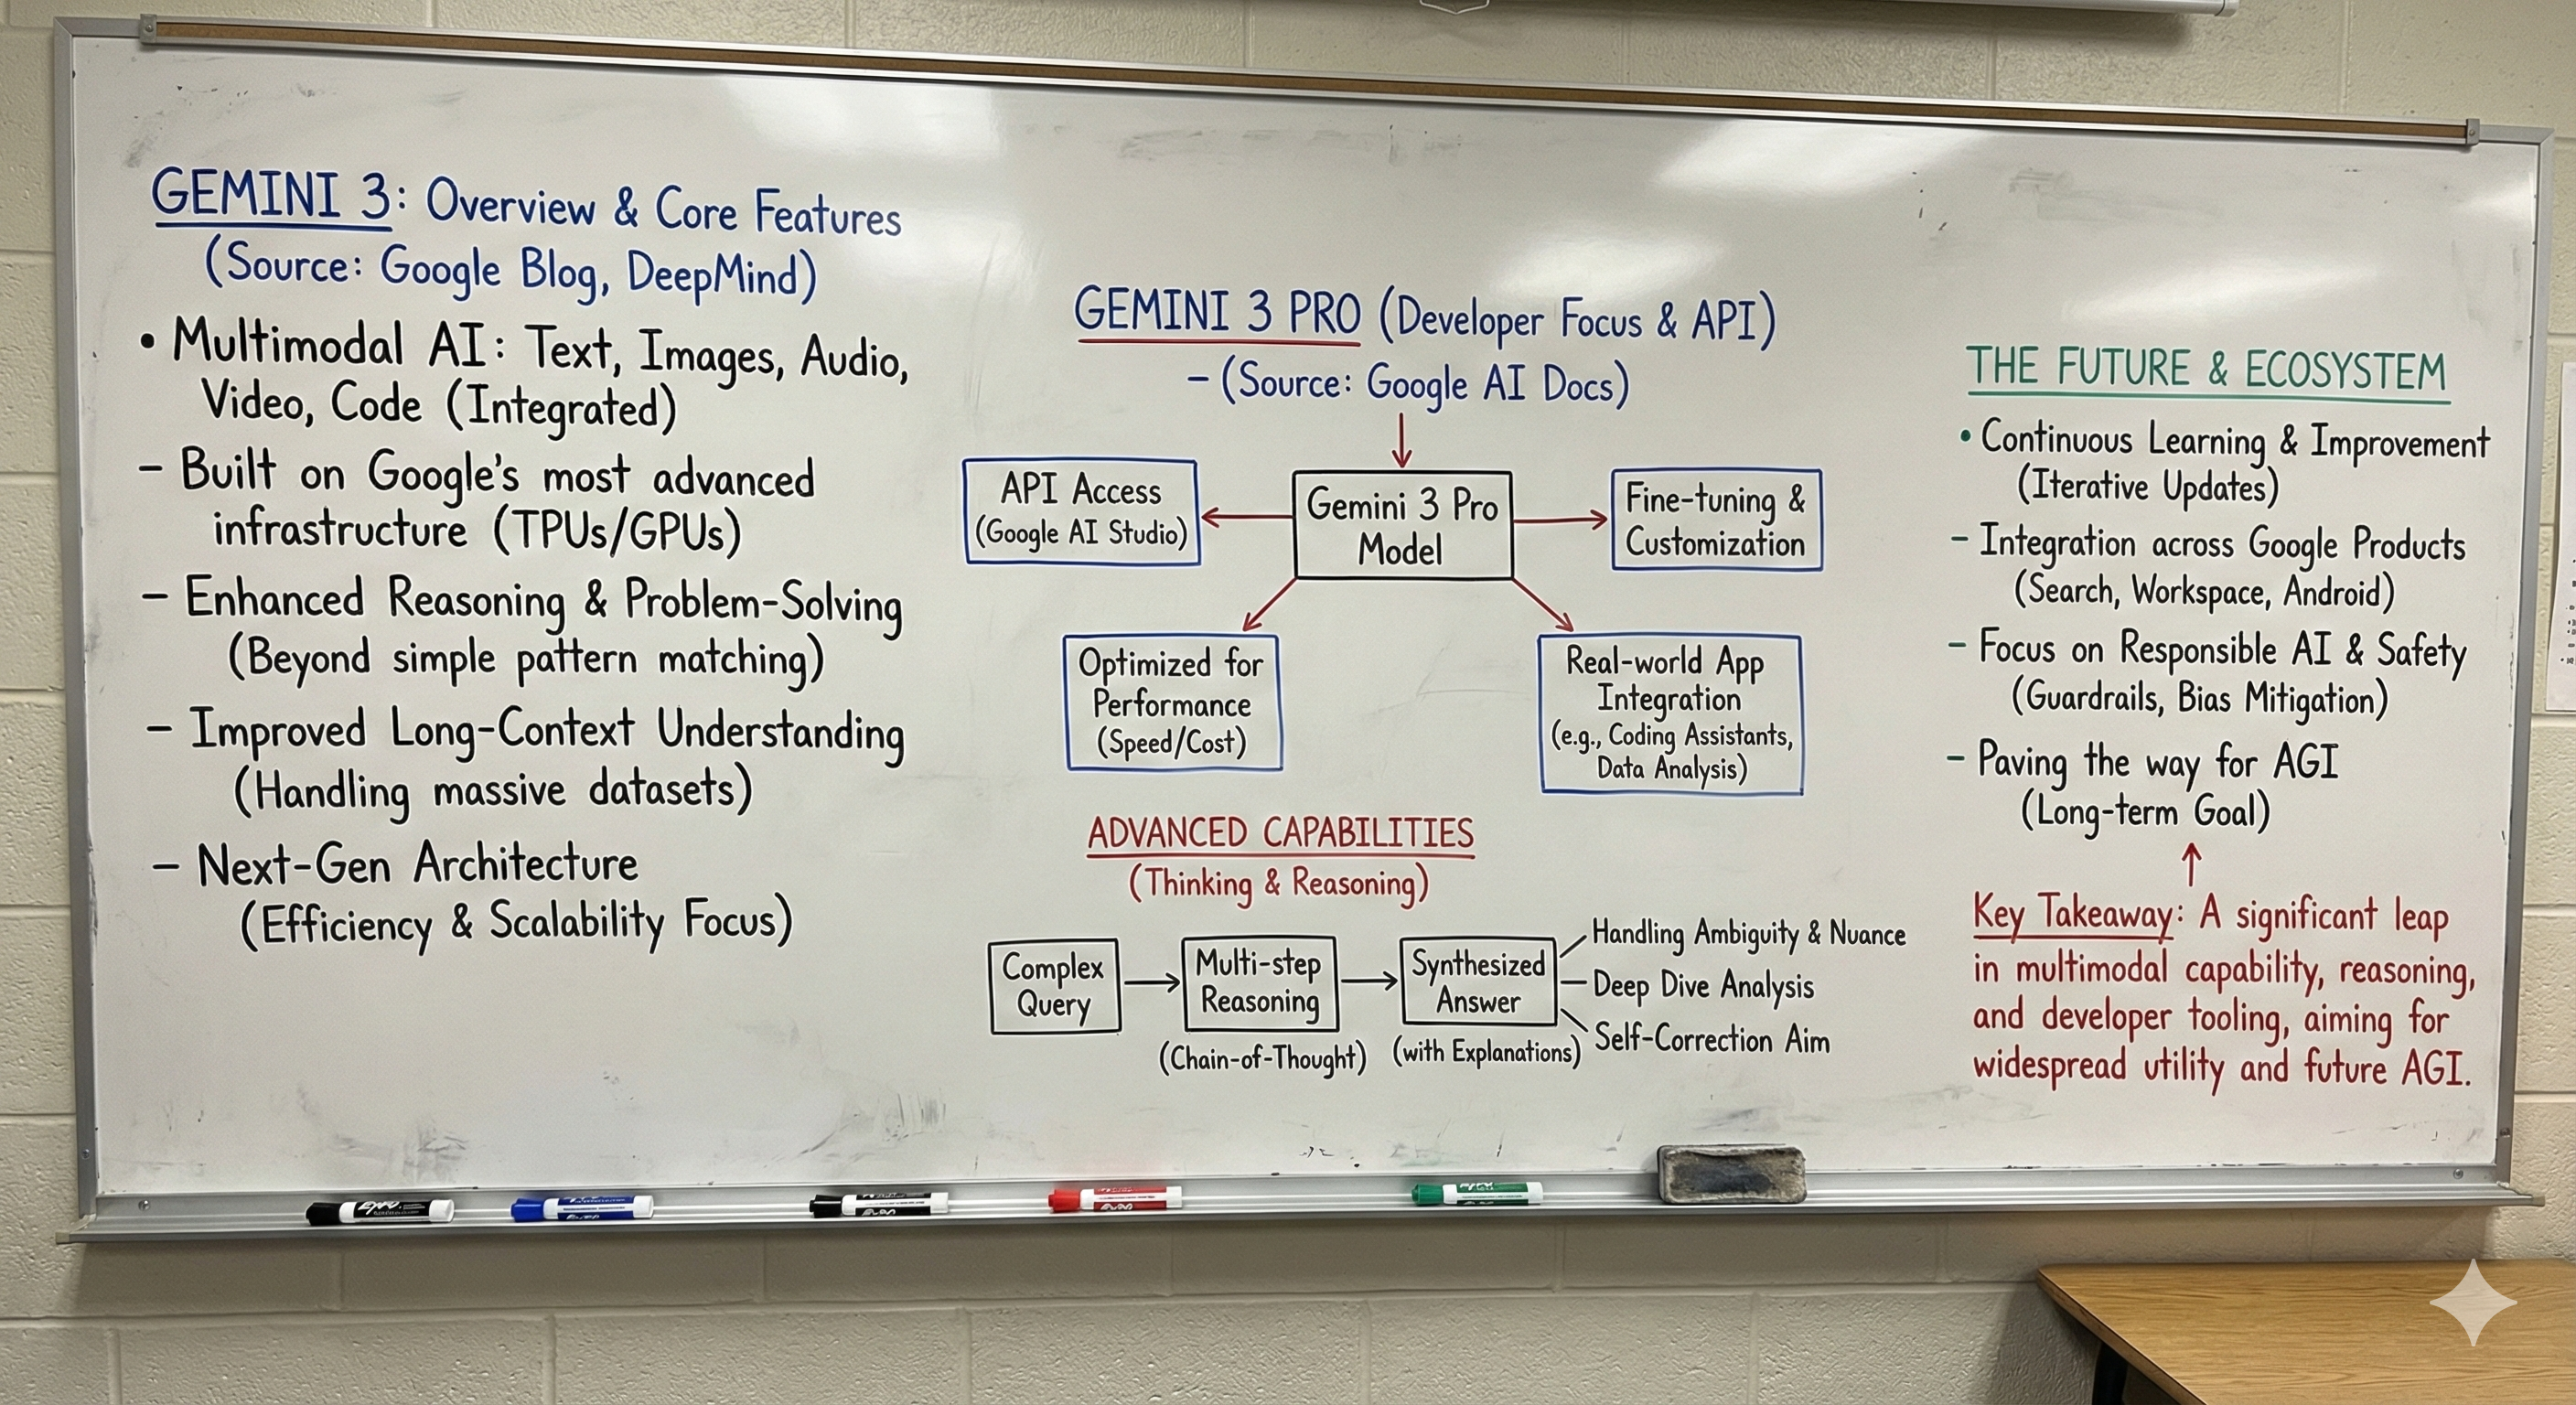 GEMINI 3: Overview & Core Features
(Source: Google Blog, DeepMind)
• Multimodal AI: Text, Images, Audio,
Video, Code (Integrated)
– Built on Google's most advanced
infrastructure (TPUs/GPUs)
– Enhanced Reasoning & Problem-Solving
(Beyond simple pattern matching)
– Improved Long-Context Understanding
(Handling massive datasets)
– Next-Gen Architecture
(Efficiency & Scalability Focus)
GEMINI 3 PRO (Developer Focus & API)
– (Source: Google AI Docs)
API Access
(Google AI Studio)
Gemini 3 Pro
Model
Fine-tuning &
Customization
Optimized for
Performance
(Speed/Cost)
Real-world App
Integration
(e.g., Coding Assistants,
Data Analysis)
ADVANCED CAPABILITIES
(Thinking & Reasoning)
Complex
Query
Multi-step
Reasoning
(Chain-of-Thought)
Synthesized
Answer
(with Explanations)
Handling Ambiguity & Nuance
Deep Dive Analysis
Self-Correction Aim
THE FUTURE & ECOSYSTEM
• Continuous Learning & Improvement
(Iterative Updates)
– Integration across Google Products
(Search, Workspace, Android)
– Focus on Responsible AI & Safety
(Guardrails, Bias Mitigation)
– Paving the way for AGI
(Long-term Goal)
Key Takeaway: A significant leap
in multimodal capability, reasoning,
and developer tooling, aiming for
widespread utility and future AGI.